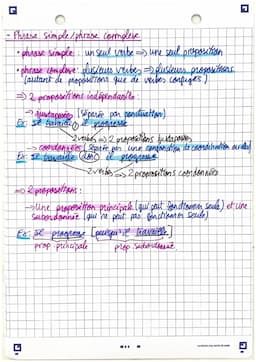 - Phrase simple / phrase complexe
• phrase simple : un seul verbe => une seul proposition
• phrase complexe : plusieurs verbes => plusieurs propositions
(autant de propositions que de verbes conjugués)
=> 2 propositions indépendantes :
-> juxtaposées (séparée par ponctuation)
Ex: Il travaille, il progresse
2 verbes => 2 propositions juxtaposées
-> coordonnées (séparée par une conjonction de coordination
Ex: Il travaille donc il progresse
2 verbes => 2 propositions coordonnées
=> 2 propositions :
-> Une proposition principale (qui peut fonctionner seule) et une
subordonnée (qui ne peut pas fonctionner seule)
Ex: Il progresse [puisqu'il travaille]
prop principale prop subordonné